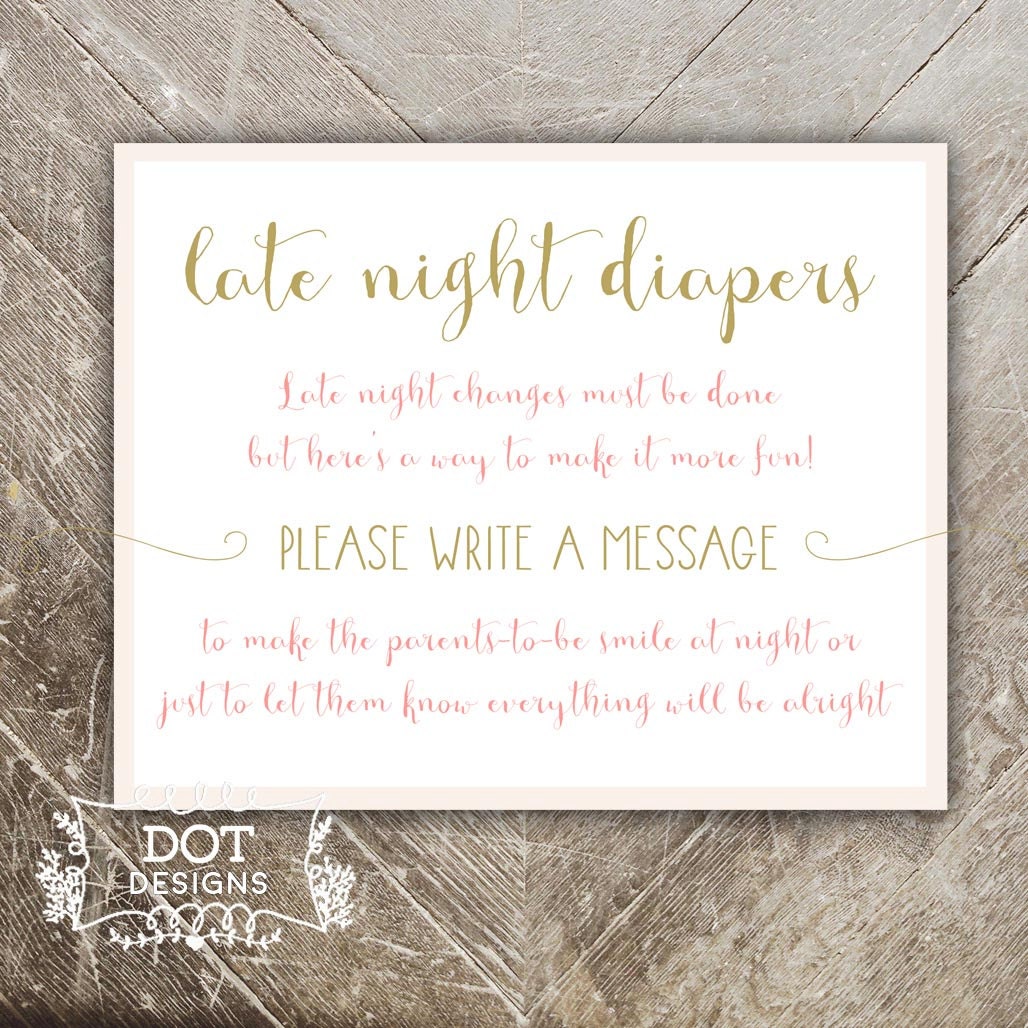 late night diapers
Late night changes must be done
but here's a way to make it more fun!
PLEASE WRITE A MESSAGE
to make the parents-to-be smile at night or
just to let them know everything will be alright
DOT
DESIGNS